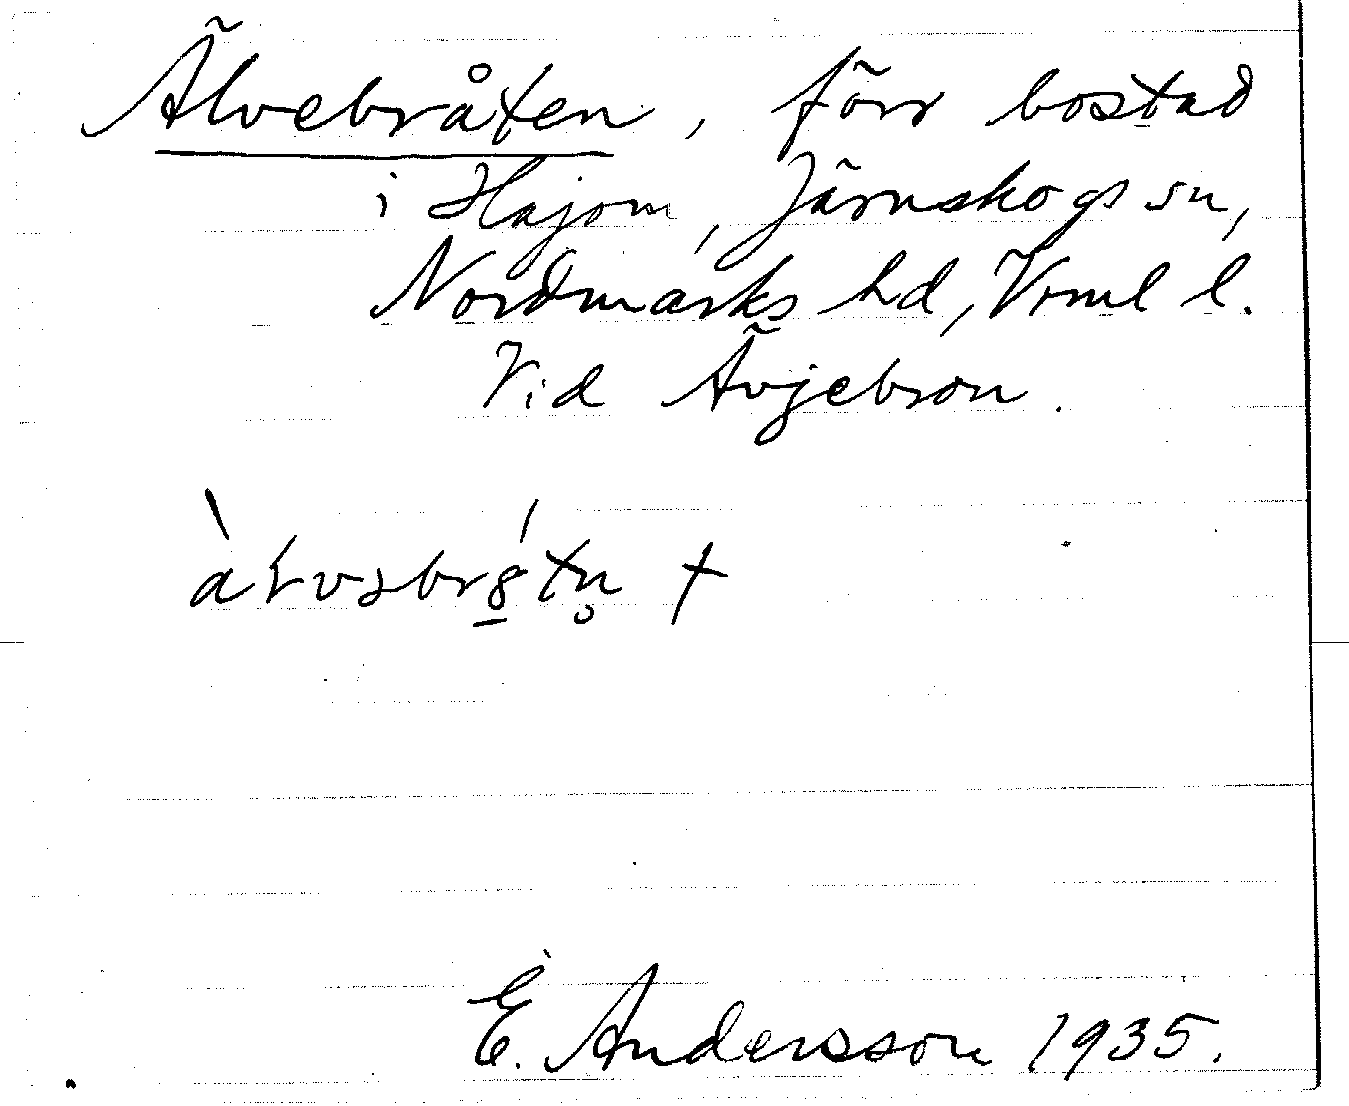 Älvebråten, förr bostad
i Hajom, Järnskogs sn,
Nordmarks hd, Vrml l.
Vid Ävjebron.
E. Andersson 1935.